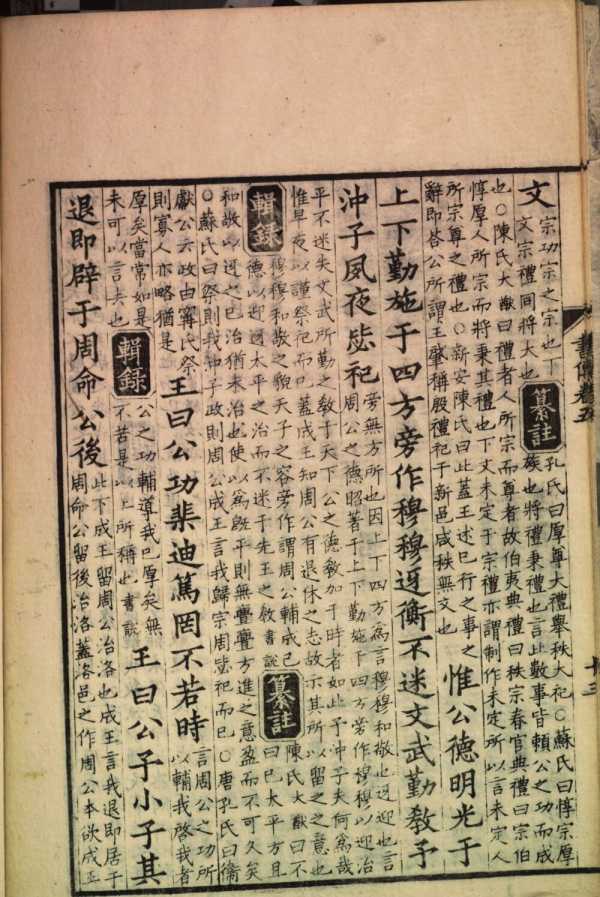 文
宗功宗之宗也下
文宗禮同將大也
纂註
孔氏曰厚尊大禮舉秩大祀○蘇氏曰惇宗厚
族也將禮秉禮也言此數事皆頼公之功而成
也○陳氏大猷曰禮者人所宗而尊者故伯夷典禮曰秩宗春官典禮曰宗伯
惇厚人所宗而將秉其禮也下文未定于宗禮亦謂制作未定所以言未定人
所宗尊之禮也○新安陳氏曰此蓋王述已行之事之
辭即荅公所謂王肇稱殷禮祀于新邑咸秩無文也
惟公德明光于
上下勤施于四方旁作穆穆迓衡不迷文武勤教予
沖子夙夜毖祀
旁無方所也因上下四方爲言穆穆和敬也迓迎也言
周公之德昭著于上下勤施于四方旁作穆穆以迎治
平不迷失文武所勤之教于天下公之德教加于時者如此予沖子夫何爲哉
惟早夜以謹祭祀而已蓋成王知周公有退休之志故示其所以留之之意也
輯録
穆穆和敬之貌天子之容旁作謂周公輔成已
德以迎迓太平之治而不迷于先王之教書説
纂註
陳氏大猷曰不
曰已太平方且
和敬以迓之已治猶未治也使以爲旣平則無亹亹方進之意盈而不可久矣
○蘇氏曰祭則我沖子政則周公成王言我歸宗周毖祀而已○唐孔氏曰衞
獻公云政由甯氏祭
則寡人亦略猶是
王曰公功棐迪篤罔不若時
言周公之功所
以輔我啓我者
厚矣當常如是
未可以言去也
輯録
公之功輔導我已厚矣無
不若是以上所稱也書説
王曰公予小子其
退即辟于周命公後
此下成王留周公治洛也成王言我退即居于
周命公留後治洛蓋洛邑之作周公本欲成王
書傳卷五
十三